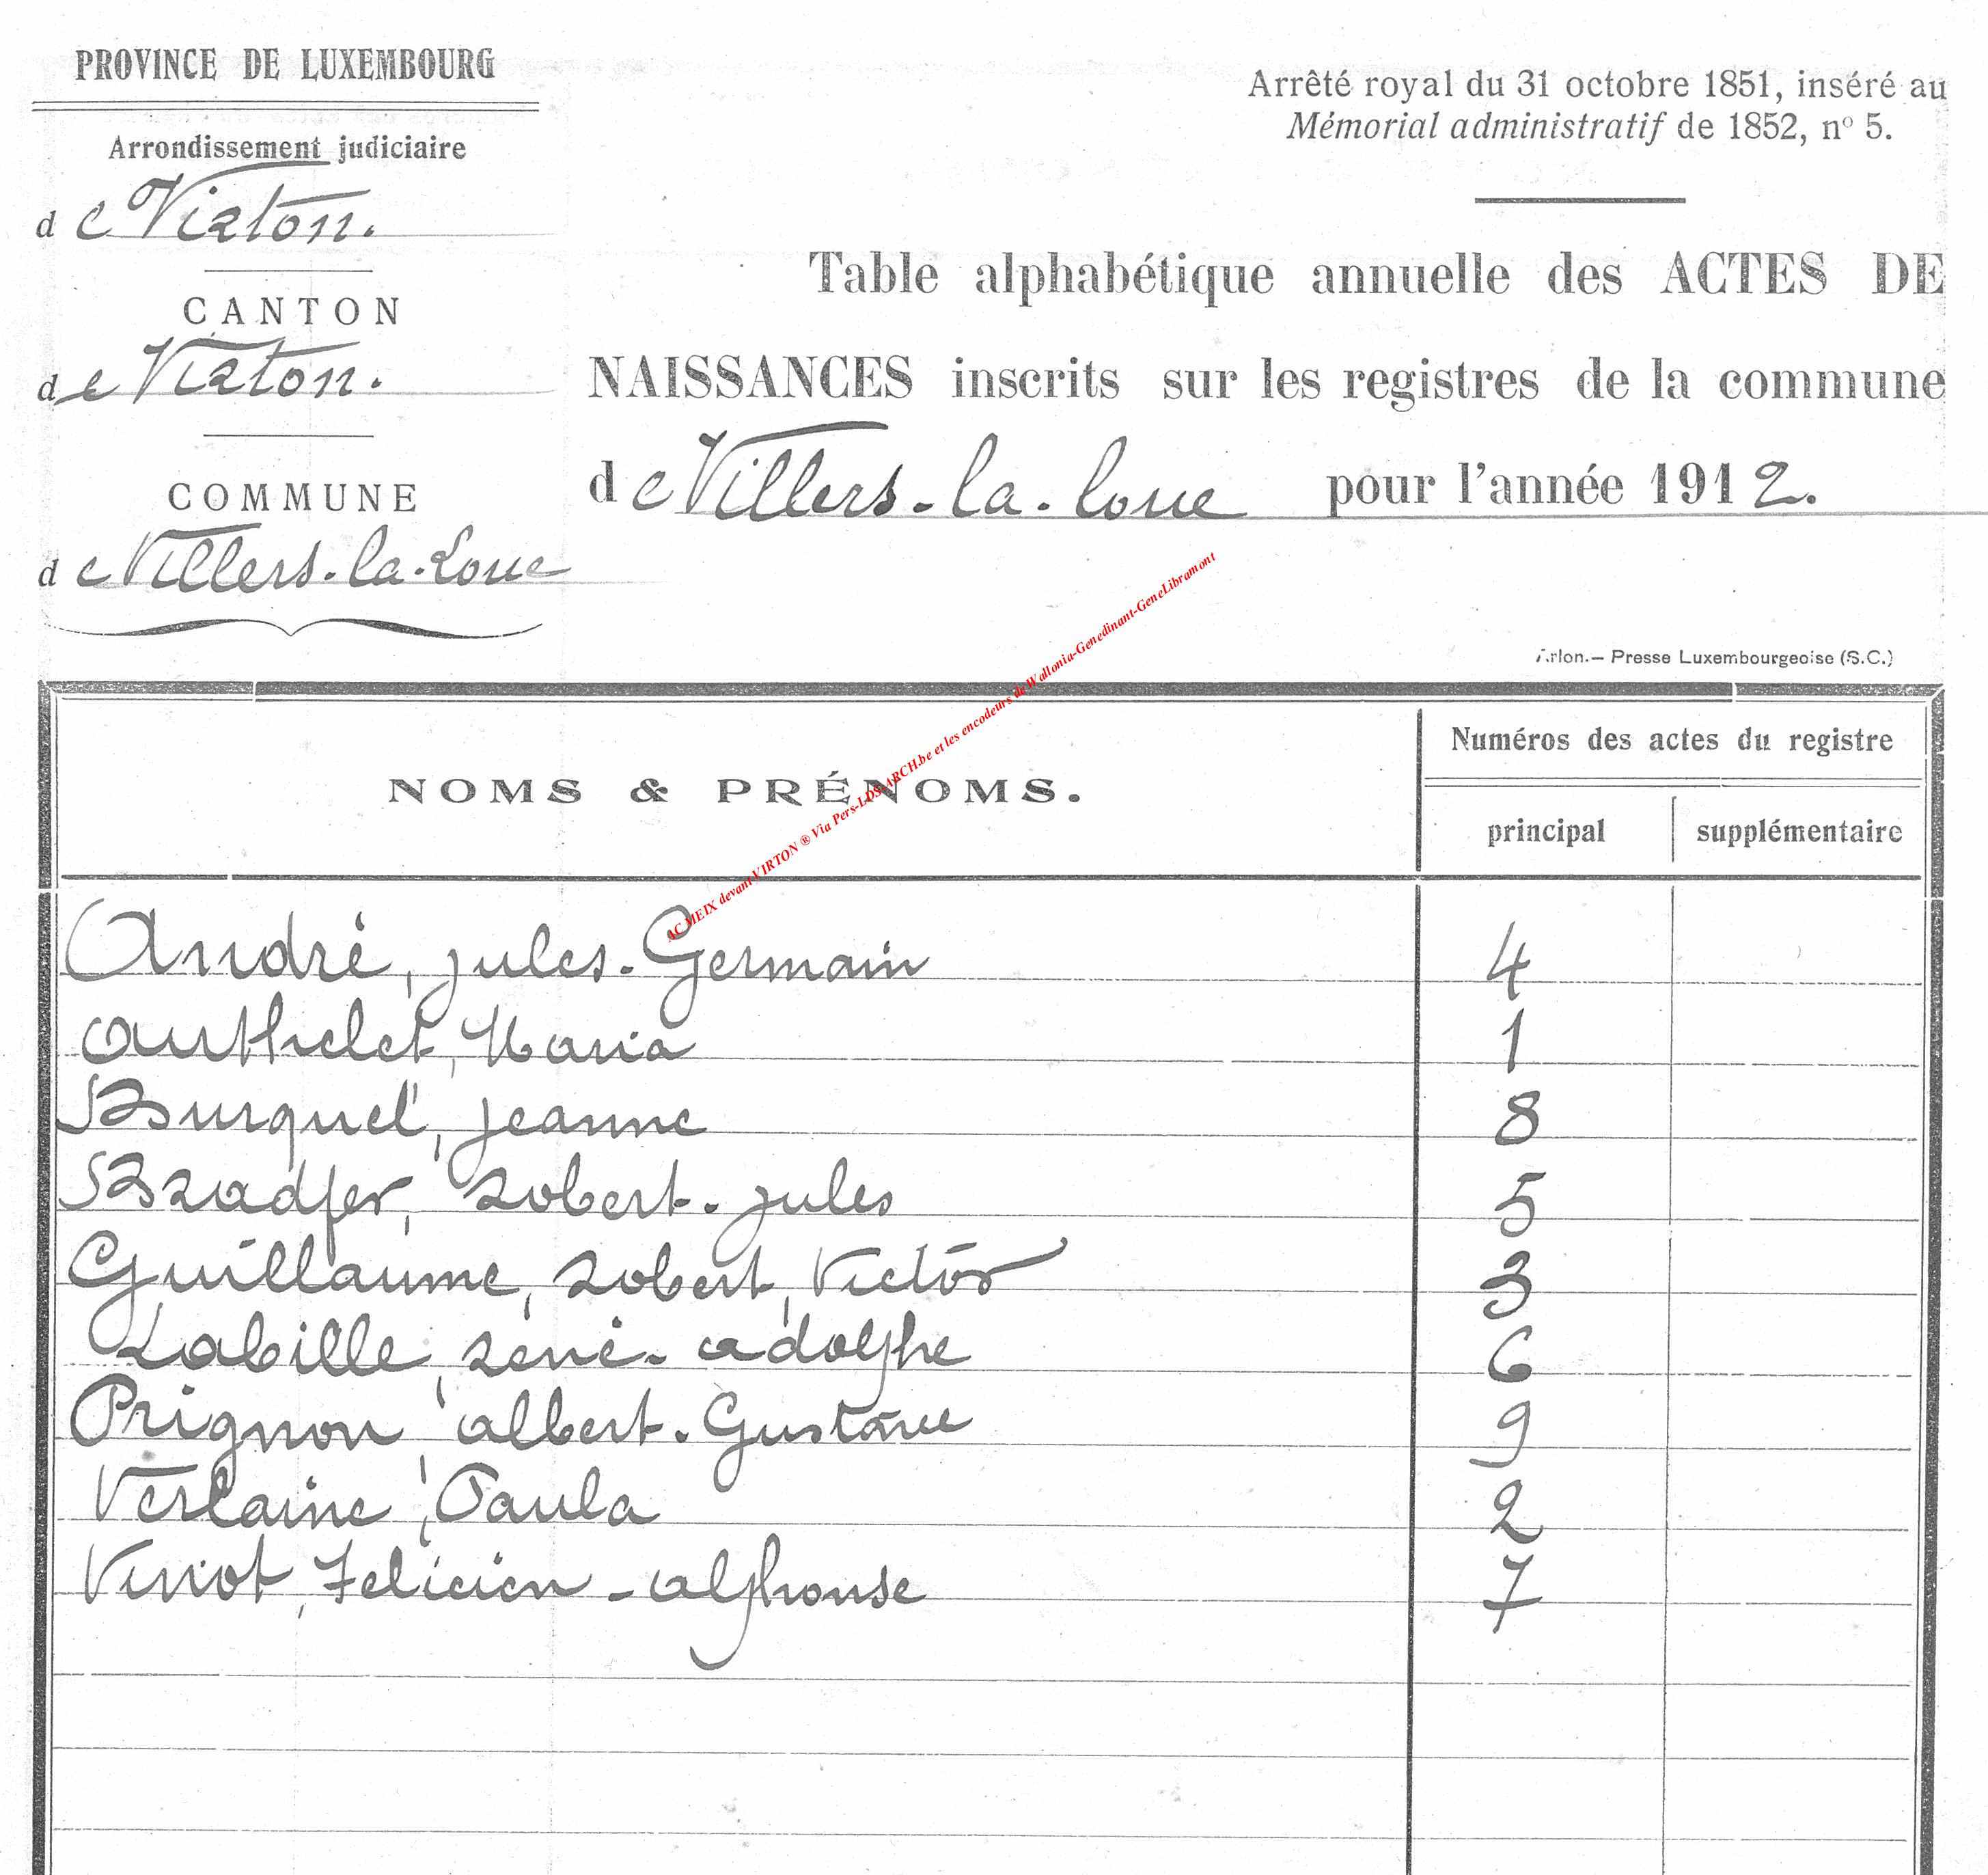 PROVINCE DE LUXEMBOURG
Arrondissement judiciaire
de Virton.
CANTON
de Virton.
COMMUNE
de Villers-la-Loue
Arrêté royal du 31 octobre 1851, inséré au
Mémorial administratif de 1852, n° 5.
Table alphabétique annuelle des ACTES DE
NAISSANCES inscrits sur les registres de la commune
de Villers-la-loue pour l'année 1912.
Arlon.— Presse Luxembourgeoise (S.C.)
AC MEIX devant VIRTON ® Via Pers-LDS-ARCH.be et les encodeurs de Wallonia-Genedinant-GeneLibramont
NOMS & PRÉNOMS.
Numéros des actes du registre
principal supplémentaire
André, jules-Germain 4
Authelet, Maria 1
Burquel, jeanne 8
Bradfer, Robert-jules 5
Guillaume, Robert, Victor 3
Labille, René-adolphe 6
Prignon, albert-Gustave 9
Verlaine, Paula 2
Viriot, Felicien-alphonse 7